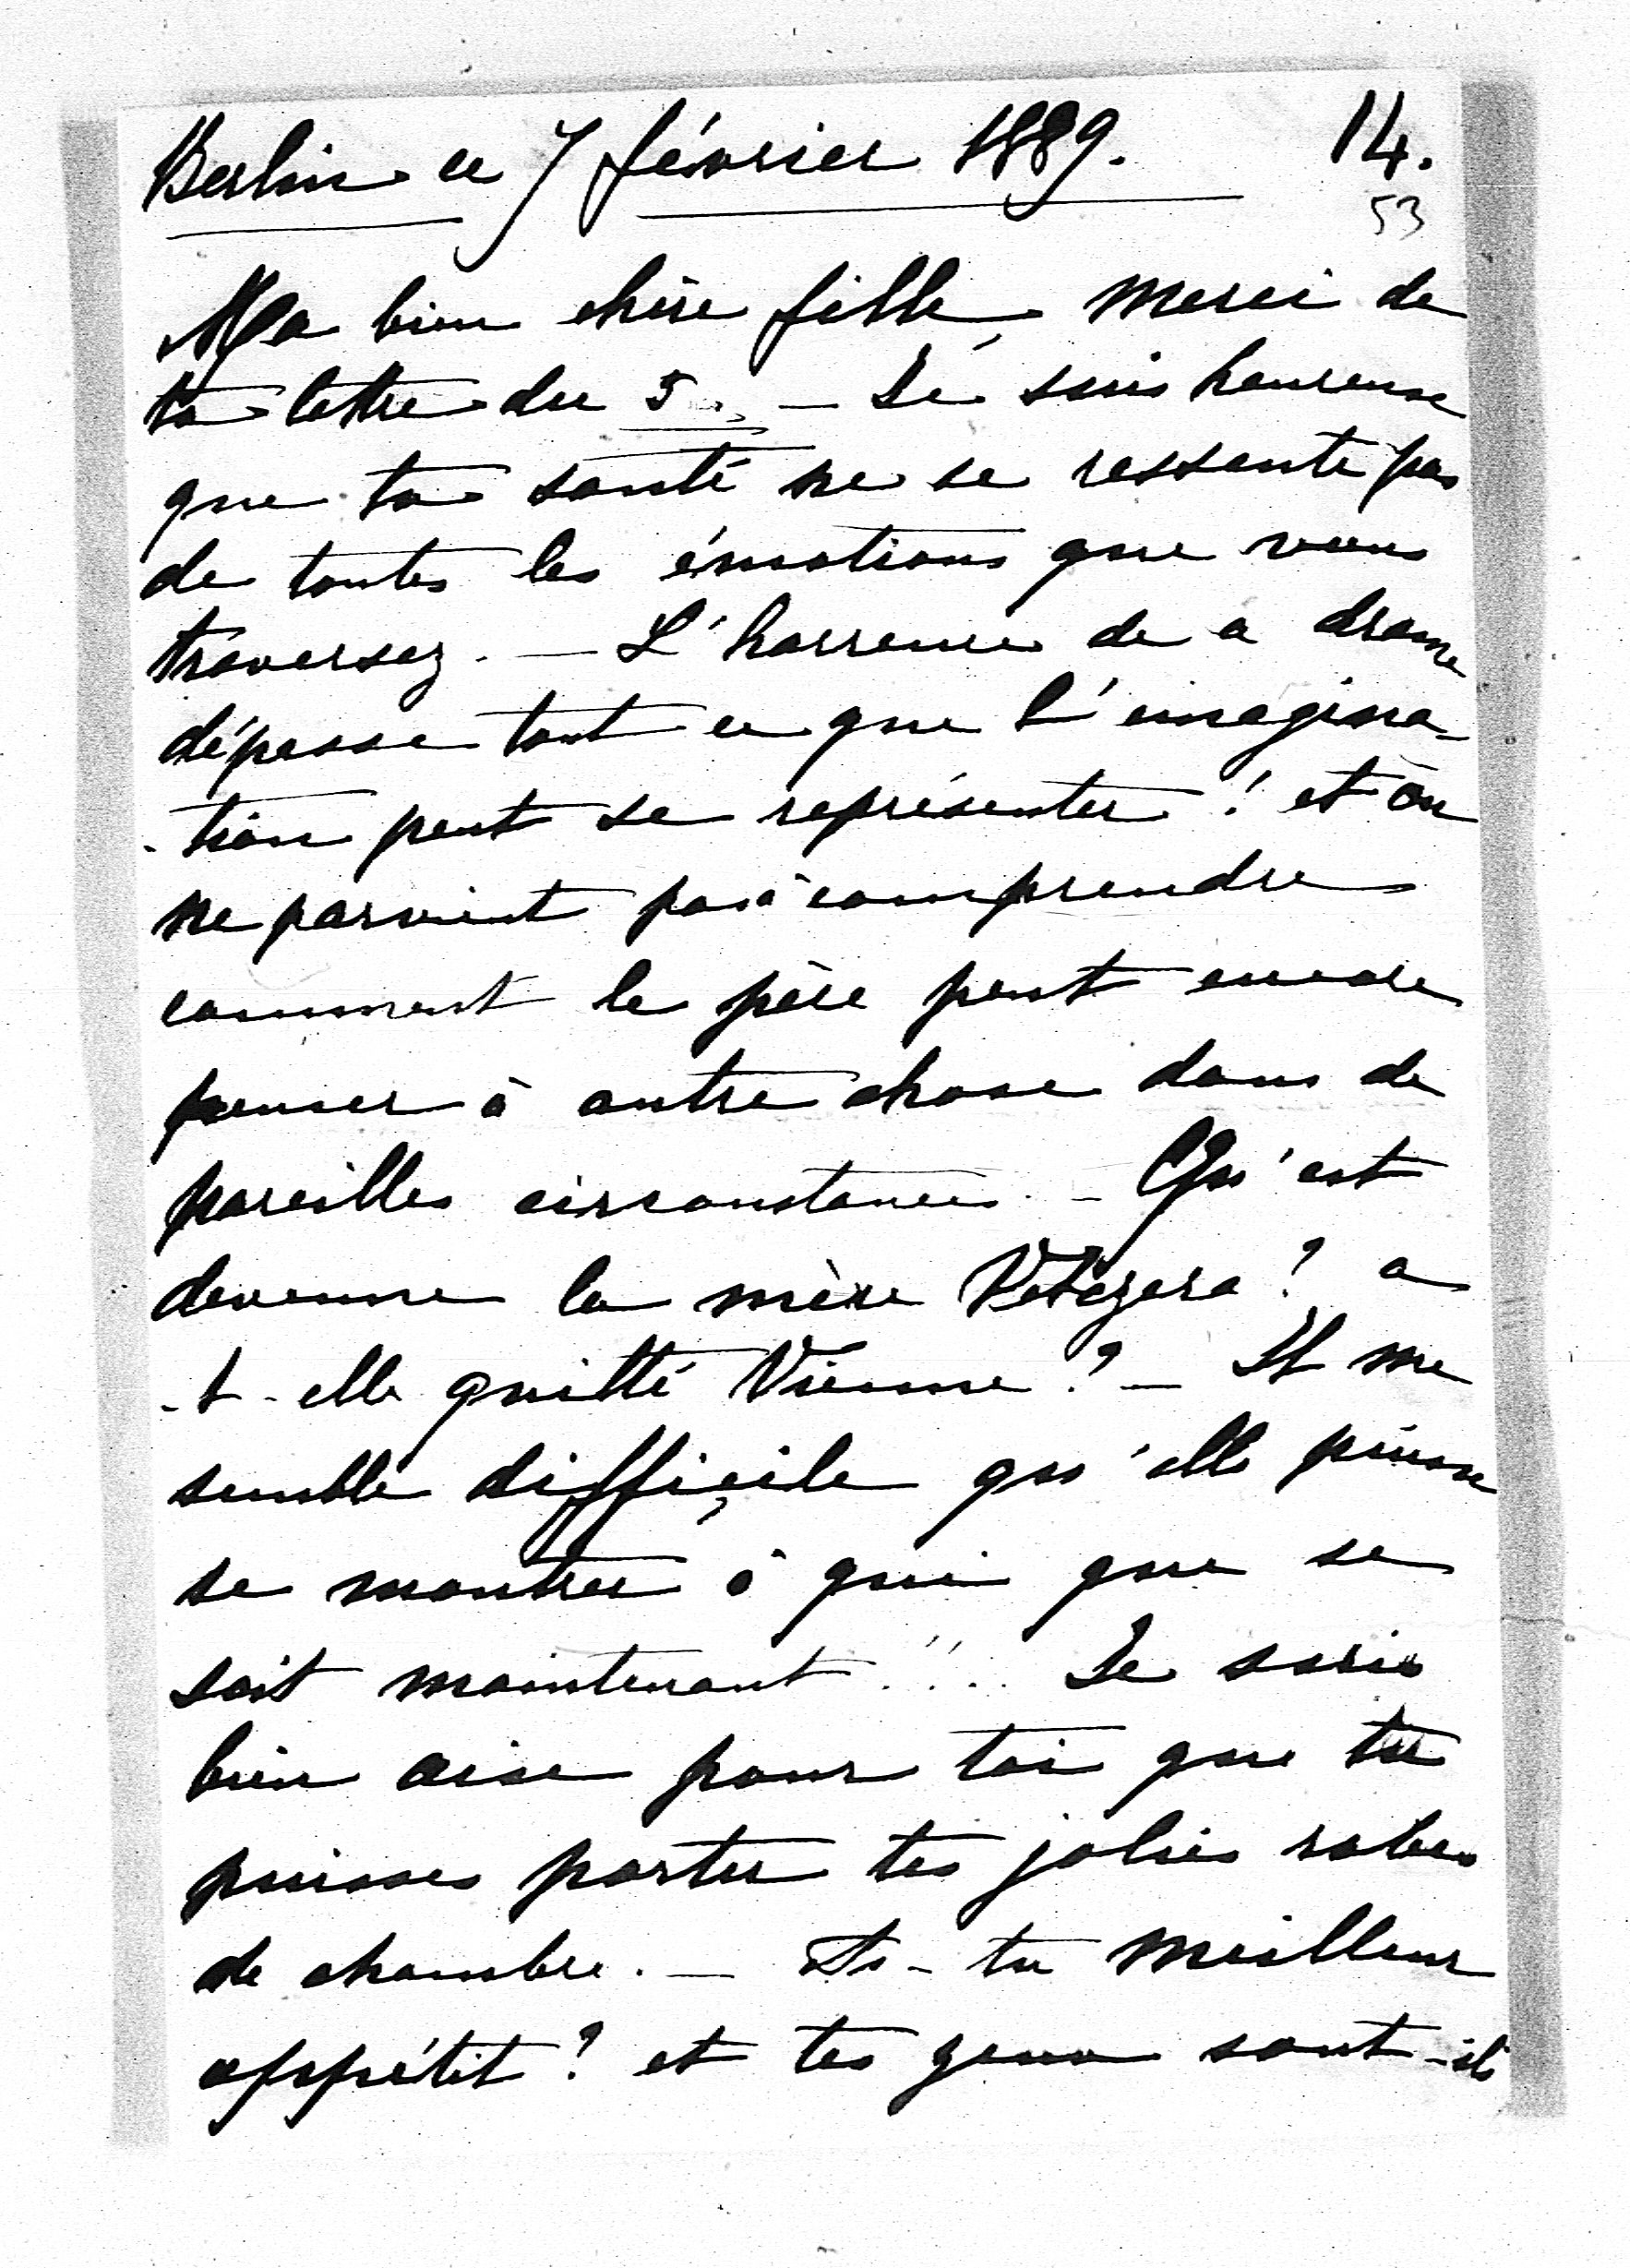 Berlin ce 7 février 1889. 14.
53
Ma bien chère fille, merci de
ta lettre du 5. — Je suis heureuse
que ta santé ne se ressente pas
de toutes les émotions que vous
traversez. — L'horreur de ce drame
dépasse tout ce que l'imagina-
-tion peut se représenter ! et on
ne parvient pas à comprendre
comment le père peut encore
penser à autre chose dans de
pareilles circonstances. — Qu'est
devenue la mère Vetczera ? a
-t-elle quitté Vienne ? — Il me
semble difficile qu'elle puisse
se montrer à qui que se
soit maintenant !!. Je suis
bien aise pour toi que tu
puisses porter tes jolies robes
de chambre. — As-tu meilleur
appétit ? et tes yeux sont-ils